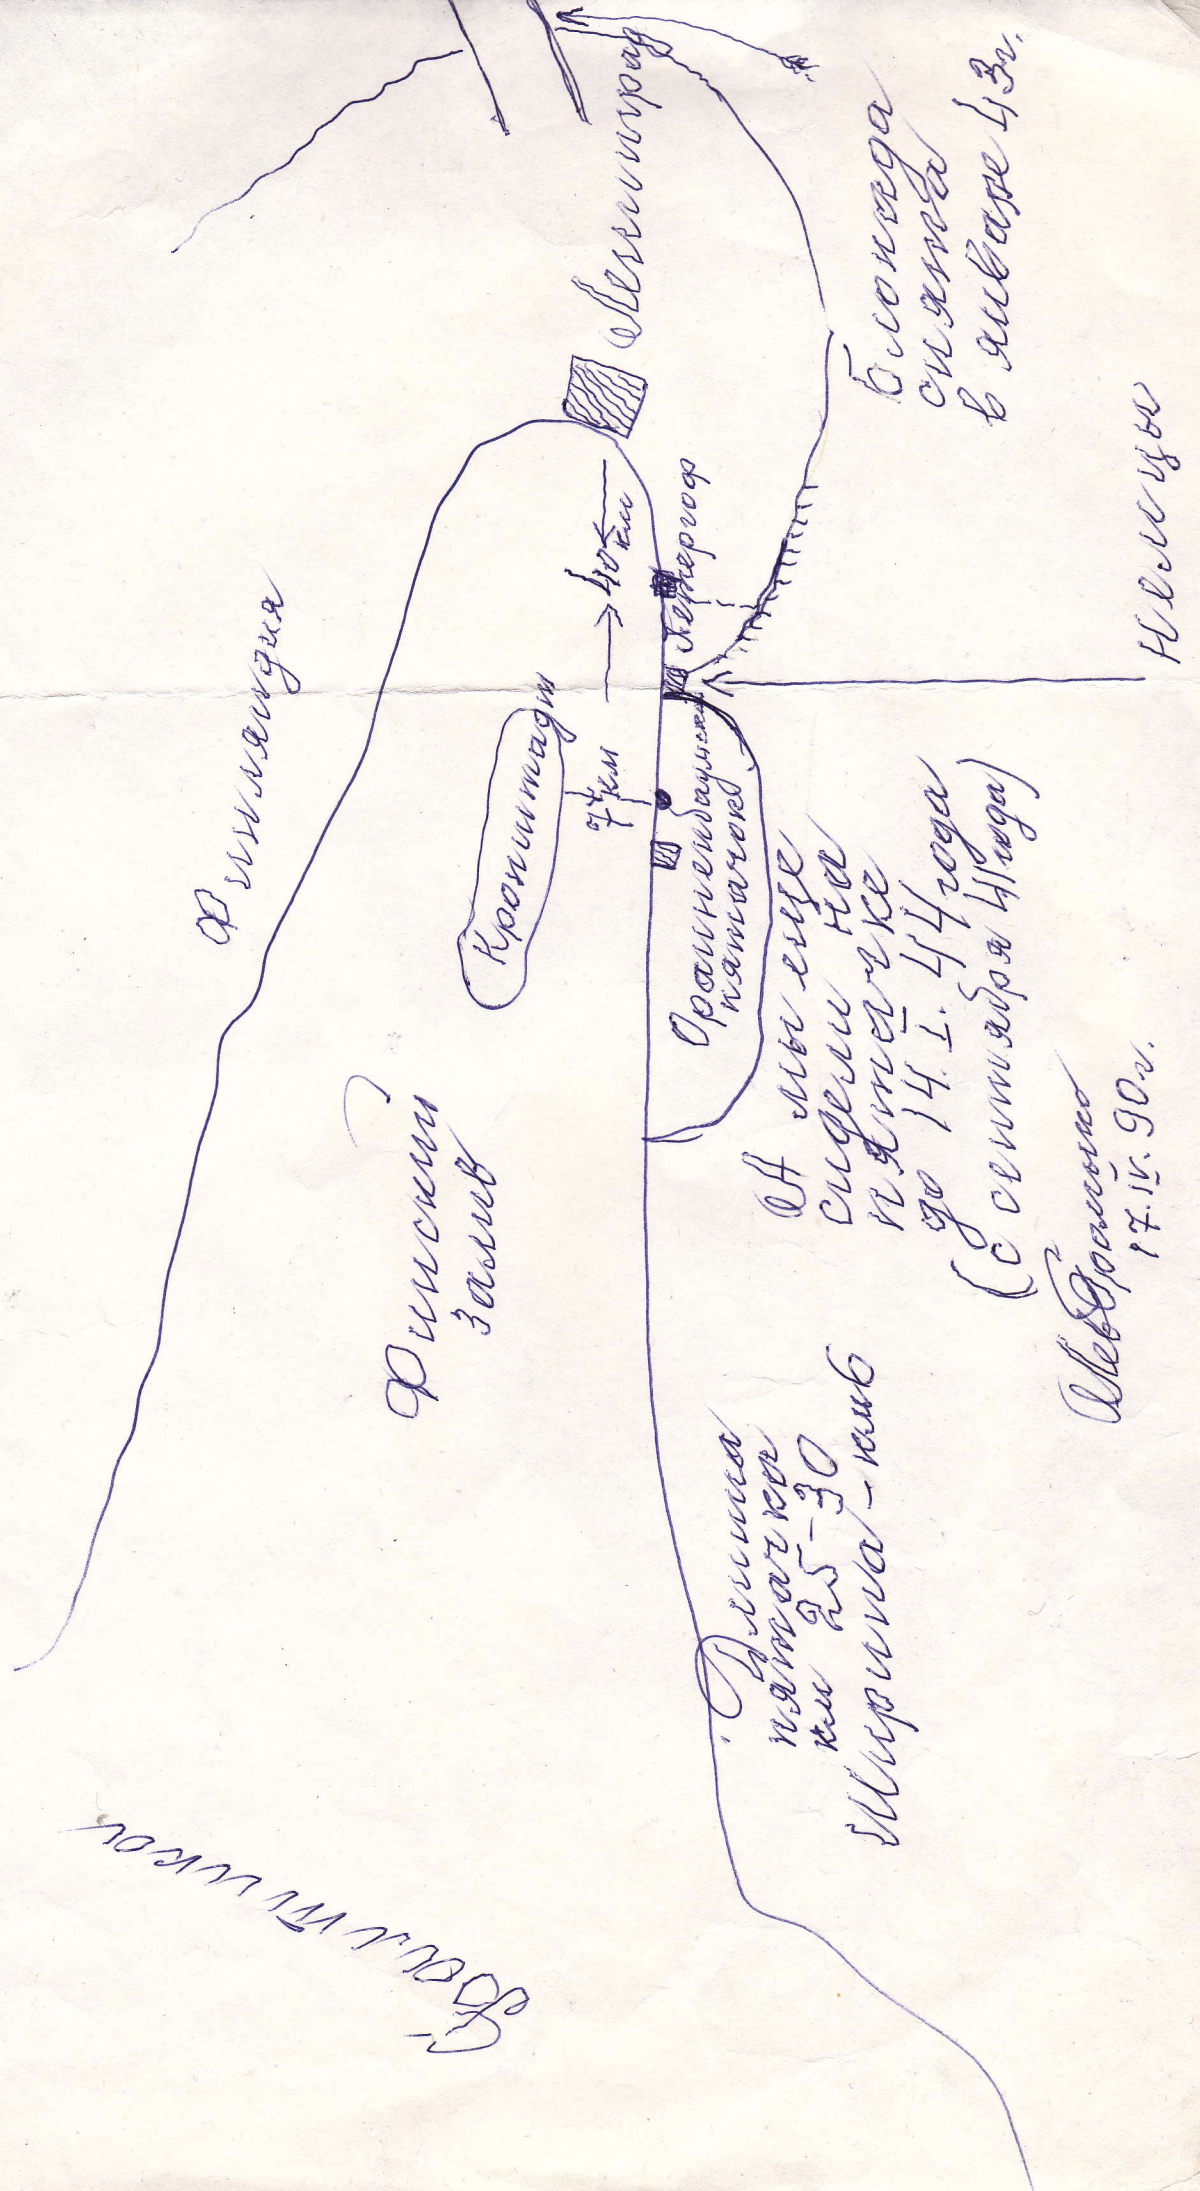 Финляндия
Балтика
Финский
залив
Кронштадт
7 км
40
км
Ленинград
Петергоф
Ораниенбаумский
пятачок
Блокада
снята
в январе 43г.
Немцы
А мы еще
сидели на
пятачке
до 14.I.44 года
(с сентября 41 года)
Длина
пятачка
км 25-30
Ширина -
17.IV.90г.